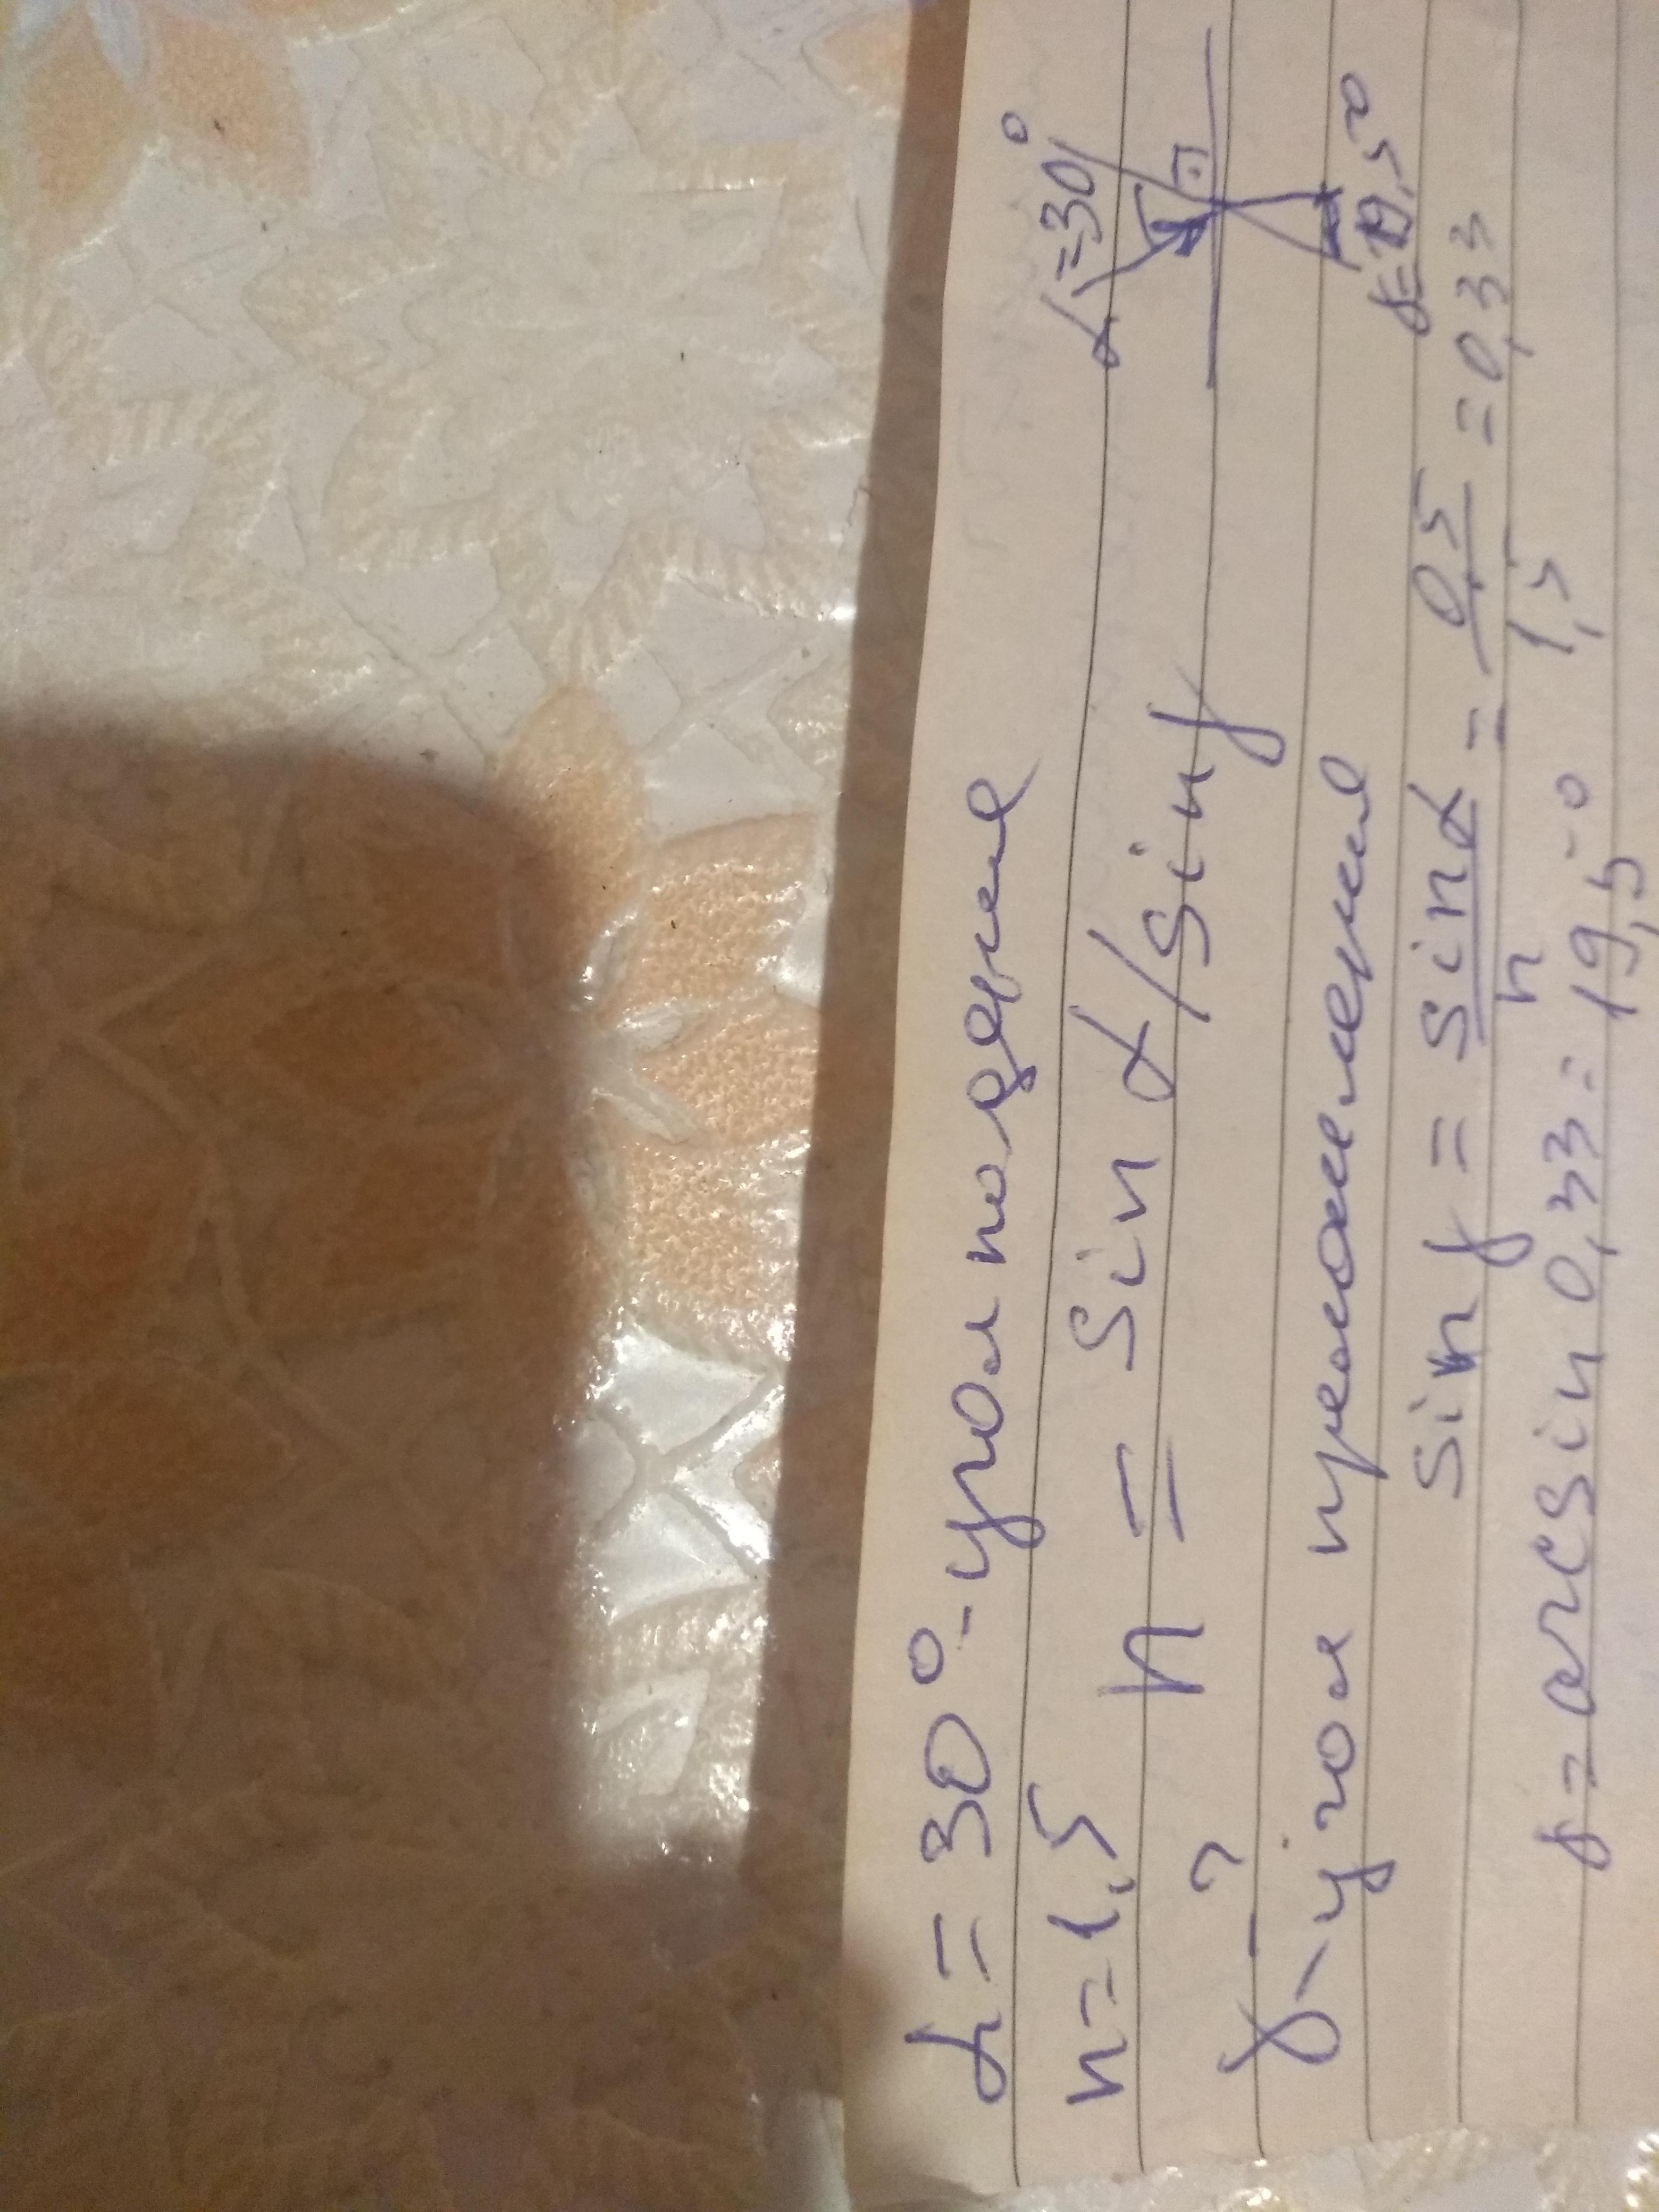 α = 30° - угол падения
α = 30°
n = 1,5 n = sin α / sin γ
γ - ?
γ = 19,5°
γ - угол преломления
sin γ = sin α / n = 0,5 / 1,5 = 0,33
γ = arcsin 0,33 = 19,5°